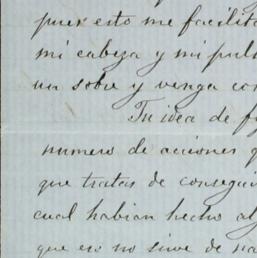 pues esto me facilita
mi cabeza y mi pul
un sobre y venga con
Tu idea de f
numero de acciones q
que tratas de consegui
cual habian hecho al
que eso no sirve de na